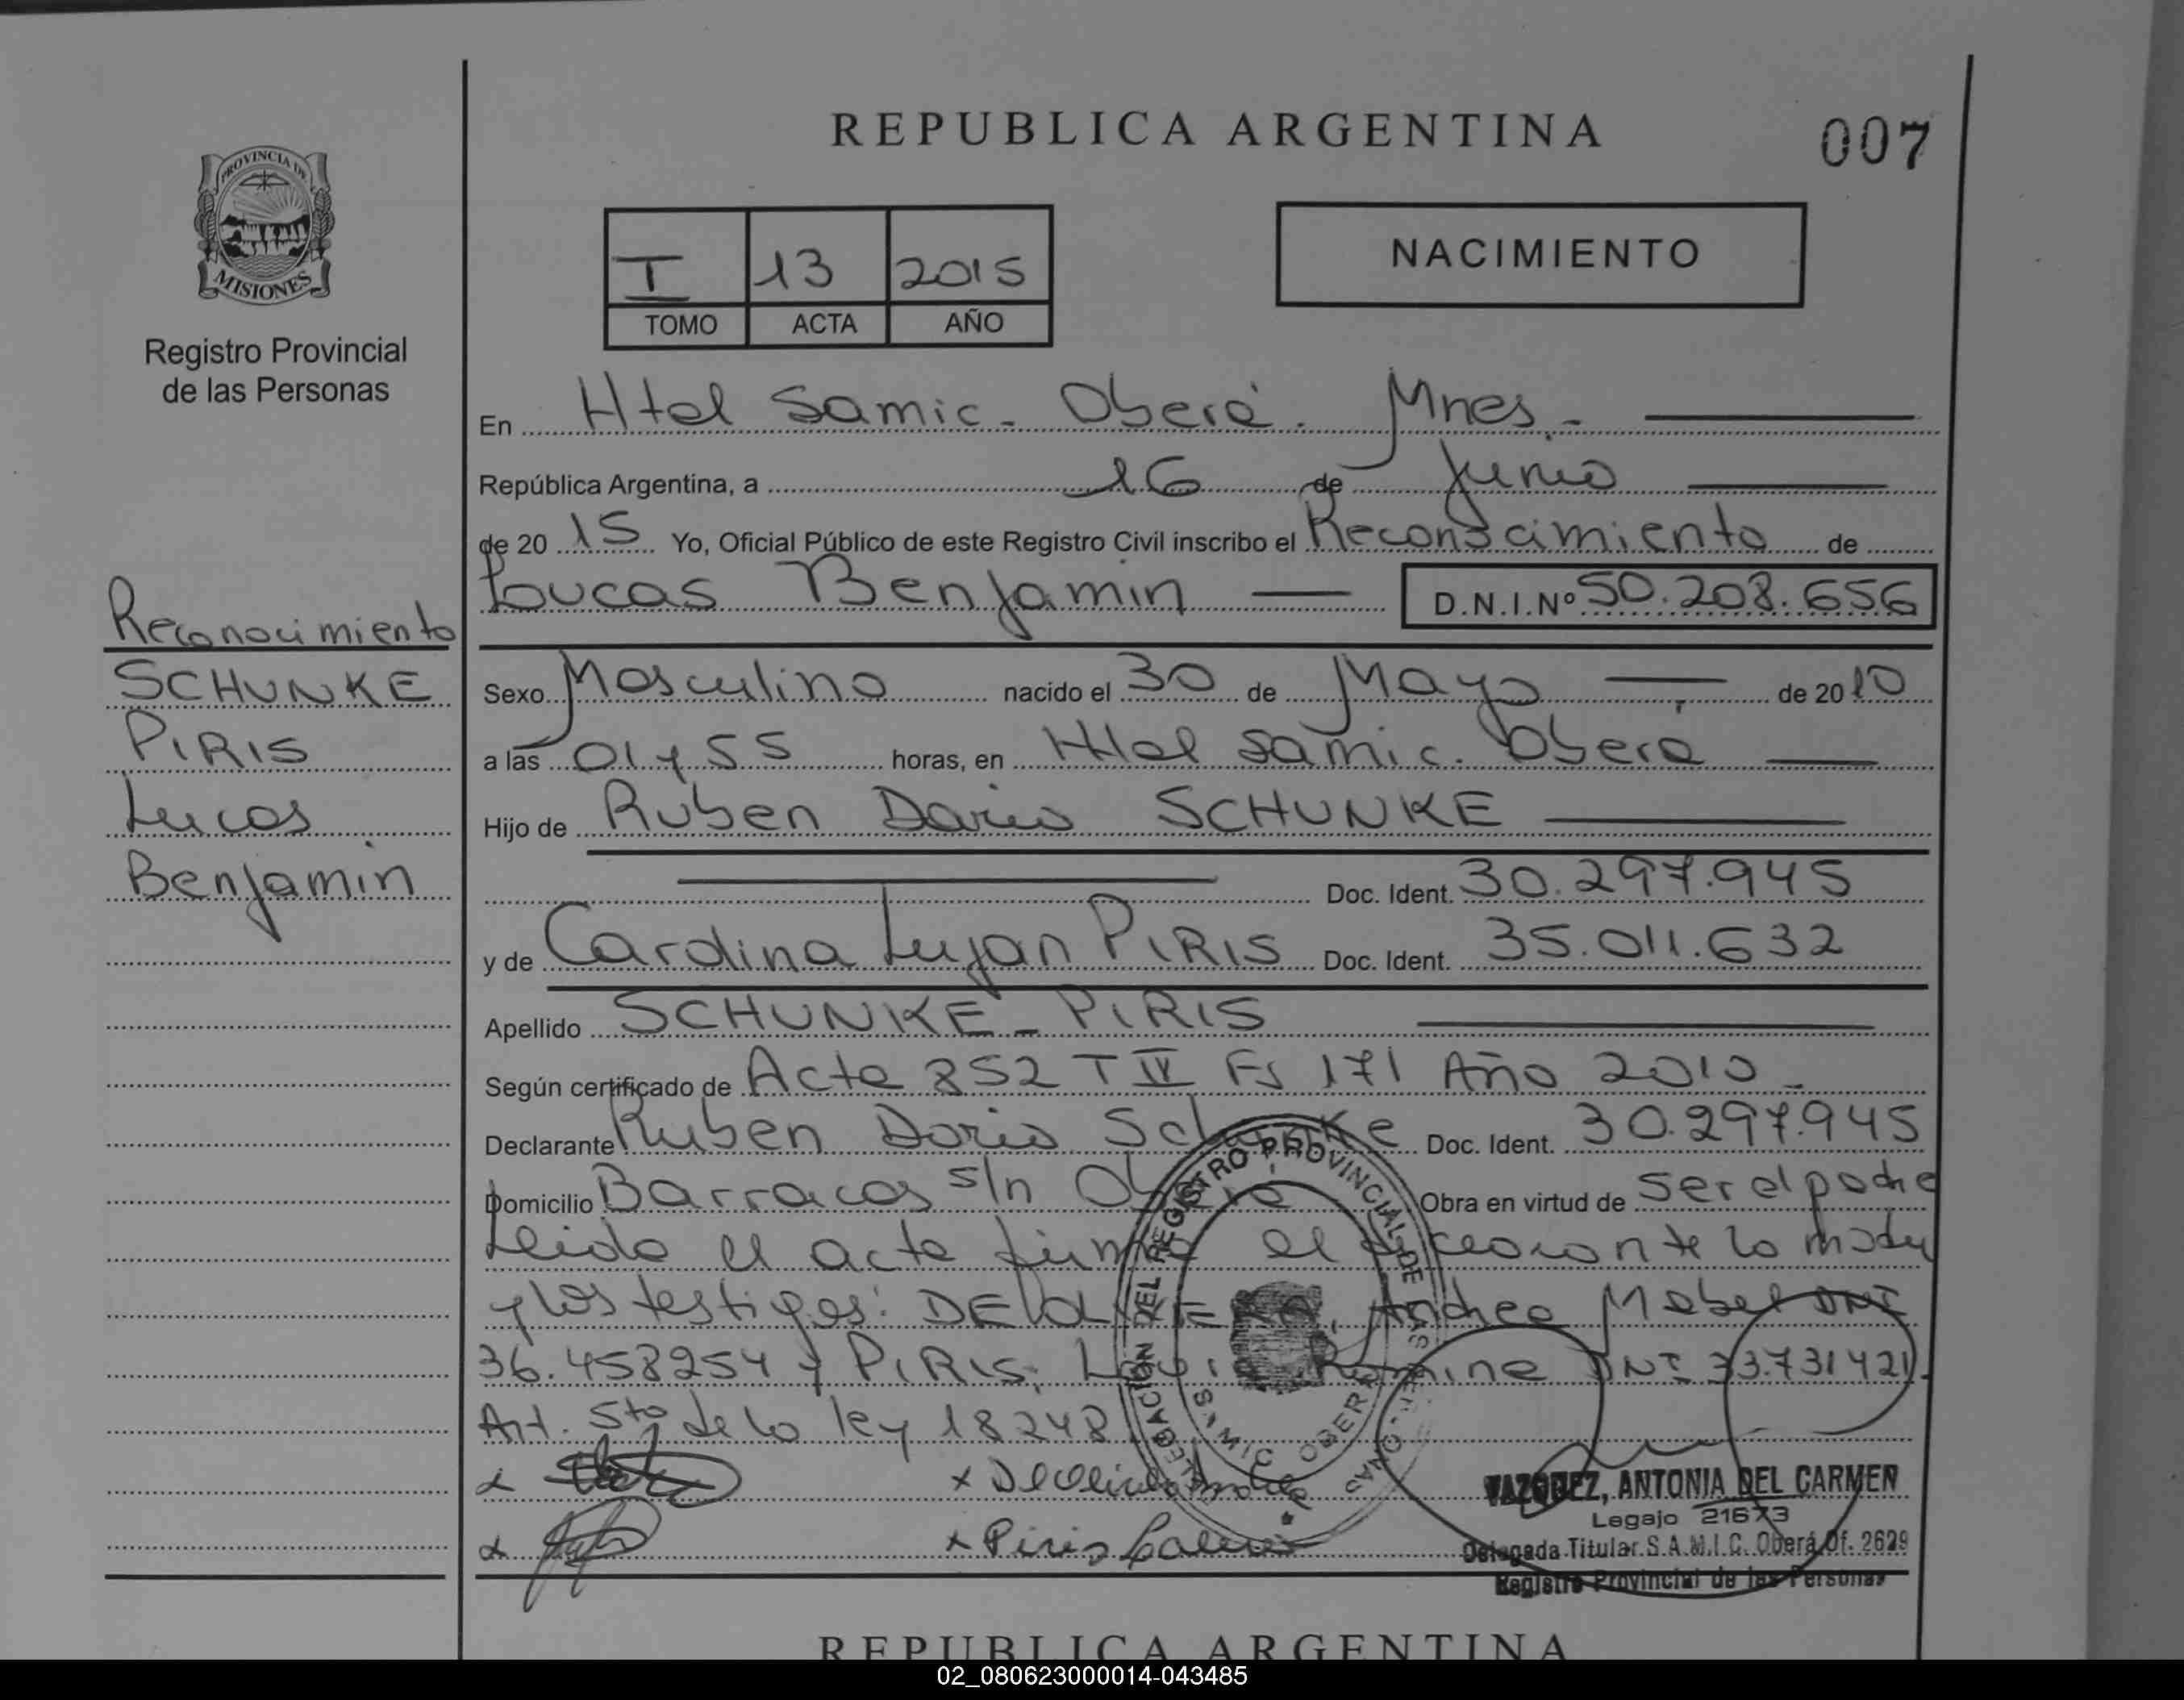 REPUBLICA ARGENTINA
007
PROVINCIA DE
MISIONES
Registro Provincial
de las Personas
I 13 2015
TOMO ACTA AÑO
NACIMIENTO
En Htal Samic - Oberá. Mnes.-
República Argentina, a 16 de Junio
de 20 15 Yo, Oficial Público de este Registro Civil inscribo el Reconocimiento de
Lucas Benjamin D.N.I.Nº 50.208.656
Reconocimiento
SCHUNKE
PIRIS
Lucas
Benjamin
Sexo Masculino nacido el 30 de Mayo de 20 10
a las 01 y 55 horas, en Htal Samic. Oberá
Hijo de Ruben Dario SCHUNKE
Doc. Ident. 30.297.945
y de Carolina Lujan PIRIS Doc. Ident. 35.011.632
Apellido SCHUNKE - PIRIS
Según certificado de Acta 852 T IV Fs 171 Año 2010 -
Declarante Ruben Dario Schunke Doc. Ident. 30.297.945
Domicilio Barracas s/n Oberá Obra en virtud de ser el padre
Leida el acta firma el declarante la madre
y los testigos: DE OLIVERA, Andrea Mabel DNI
36.458254 y PIRIS, Romina DNI 33.731421.
Art. 5to de la ley 18248
x x De Olivera
x x Piris
DELEGACION DEL REGISTRO PROVINCIAL DE LAS PERSONAS
OBERA
VAZQUEZ, ANTONIA DEL CARMEN
Legajo 21673
Delegada Titular S.A.M.I.C. Oberá Of. 2629
Registro Provincial de las Personas
REPUBLICA ARGENTINA
02_080623000014-043485